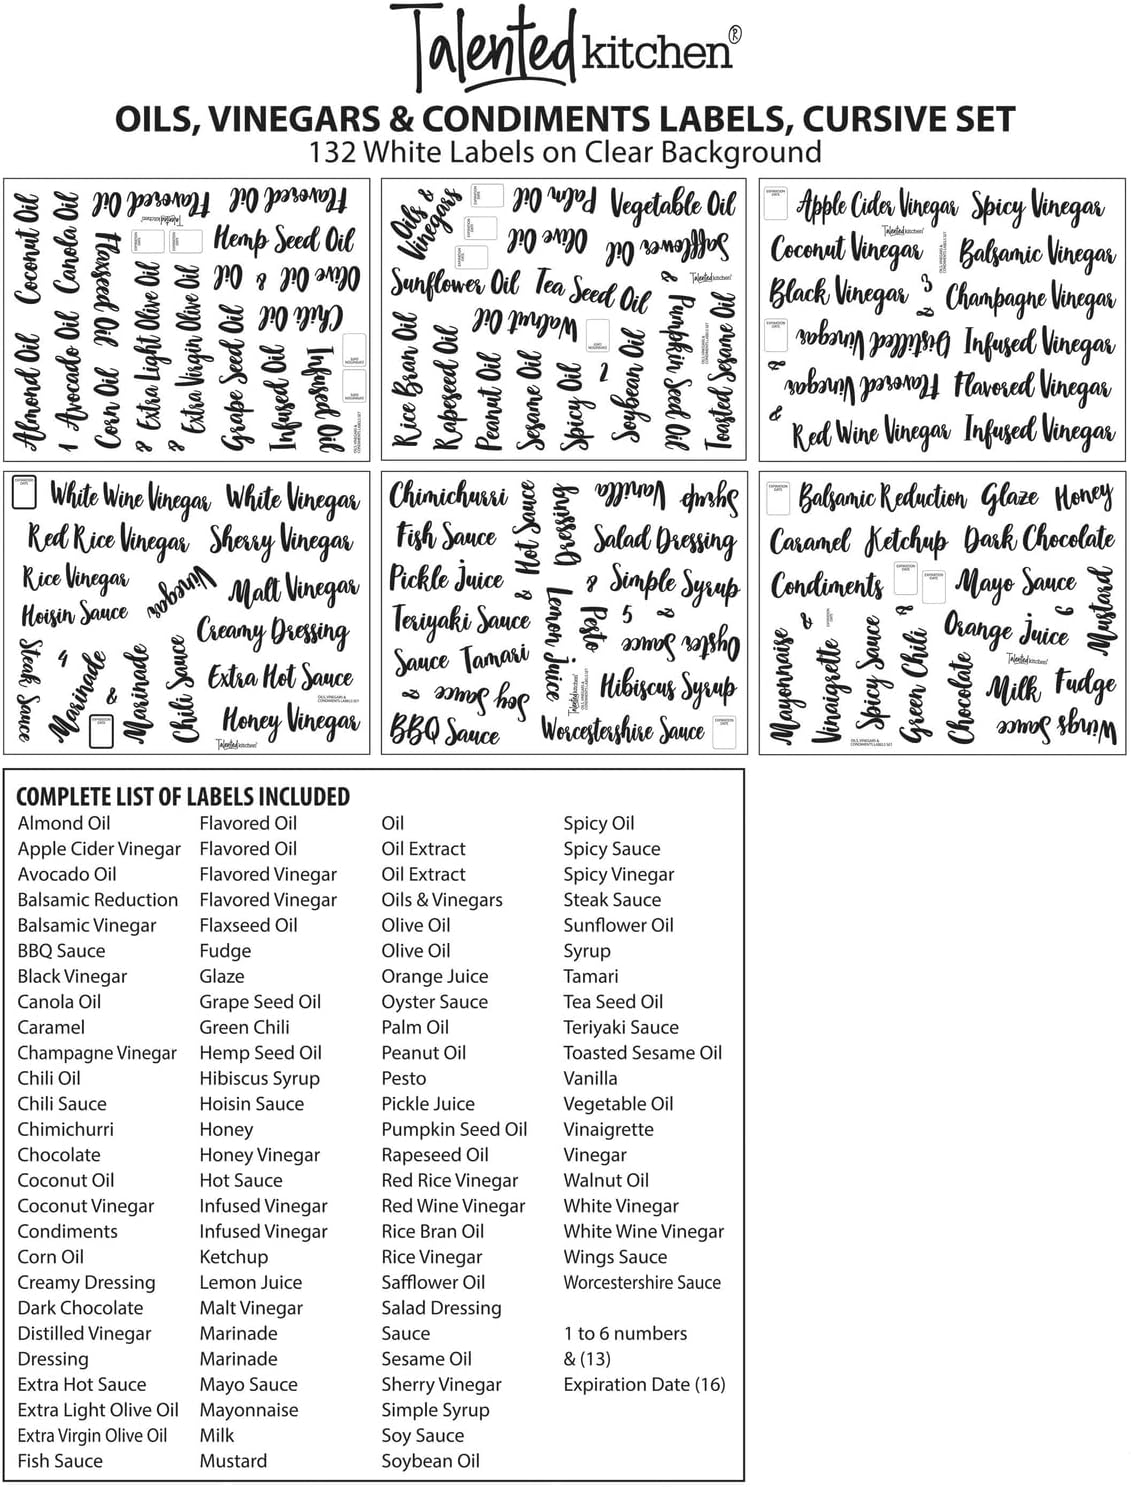 Talented kitchen®
OILS, VINEGARS & CONDIMENTS LABELS, CURSIVE SET
132 White Labels on Clear Background
Coconut Oil
Canola Oil
Flavored Oil
Flavored Oil
Talented kitchen
EXPIRATION DATE
EXPIRATION DATE
Hemp Seed Oil
Flaxseed Oil
Oil & Olive Oil
Chili Oil
Almond Oil
1
Avocado Oil
Corn Oil
&
Extra Light Olive Oil
&
Extra Virgin Olive Oil
Grape Seed Oil
Infused Oil
Infused Oil
EXPIRATION DATE
EXPIRATION DATE
OILS, VINEGARS & CONDIMENTS LABELS SET
Oils & Vinegars
EXPIRATION DATE
EXPIRATION DATE
EXPIRATION DATE
Palm Oil
Vegetable Oil
Olive Oil
Safflower Oil
Sunflower Oil
Tea Seed Oil
&
Talented kitchen
Walnut Oil
EXPIRATION DATE
Rice Bran Oil
Rapeseed Oil
Peanut Oil
Sesame Oil
Spicy Oil
2
Soybean Oil
Pumpkin Seed Oil
OILS, VINEGARS & CONDIMENTS LABELS SET
Toasted Sesame Oil
EXPIRATION DATE
Apple Cider Vinegar
Spicy Vinegar
Talented kitchen
Coconut Vinegar
OILS, VINEGARS & CONDIMENTS LABELS SET
Balsamic Vinegar
Black Vinegar
3
&
Champagne Vinegar
EXPIRATION DATE
Distilled Vinegar
Infused Vinegar
&
Flavored Vinegar
Flavored Vinegar
&
Red Wine Vinegar
Infused Vinegar
EXPIRATION DATE
White Wine Vinegar
White Vinegar
Red Rice Vinegar
Sherry Vinegar
Rice Vinegar
Vinegar
Malt Vinegar
Hoisin Sauce
Creamy Dressing
Steak Sauce
4
Marinade
&
Marinade
Chili Sauce
Extra Hot Sauce
OILS, VINEGARS & CONDIMENTS LABELS SET
EXPIRATION DATE
Honey Vinegar
Talented kitchen
Chimichurri
Hot Sauce
Dressing
Vanilla
Syrup
Fish Sauce
Salad Dressing
Pickle Juice
&
&
Simple Syrup
Teriyaki Sauce
Lemon Juice
Pesto
5
&
Oyster Sauce
Sauce
Tamari
&
Soy Sauce
Talented kitchen
OILS, VINEGARS & CONDIMENTS LABELS SET
Hibiscus Syrup
BBQ Sauce
Worcestershire Sauce
EXPIRATION DATE
EXPIRATION DATE
Balsamic Reduction
Glaze
Honey
Caramel
Ketchup
Dark Chocolate
Condiments
EXPIRATION DATE
EXPIRATION DATE
Mayo Sauce
Mustard
Mayonnaise
&
EXPIRATION DATE
Vinaigrette
Spicy Sauce
&
Green Chili
Orange Juice
6
Chocolate
Talented kitchen
Milk
Fudge
OILS, VINEGARS & CONDIMENTS LABELS SET
Wings Sauce
COMPLETE LIST OF LABELS INCLUDED
Almond Oil
Apple Cider Vinegar
Avocado Oil
Balsamic Reduction
Balsamic Vinegar
BBQ Sauce
Black Vinegar
Canola Oil
Caramel
Champagne Vinegar
Chili Oil
Chili Sauce
Chimichurri
Chocolate
Coconut Oil
Coconut Vinegar
Condiments
Corn Oil
Creamy Dressing
Dark Chocolate
Distilled Vinegar
Dressing
Extra Hot Sauce
Extra Light Olive Oil
Extra Virgin Olive Oil
Fish Sauce
Flavored Oil
Flavored Oil
Flavored Vinegar
Flavored Vinegar
Flaxseed Oil
Fudge
Glaze
Grape Seed Oil
Green Chili
Hemp Seed Oil
Hibiscus Syrup
Hoisin Sauce
Honey
Honey Vinegar
Hot Sauce
Infused Vinegar
Infused Vinegar
Ketchup
Lemon Juice
Malt Vinegar
Marinade
Marinade
Mayo Sauce
Mayonnaise
Milk
Mustard
Oil
Oil Extract
Oil Extract
Oils & Vinegars
Olive Oil
Olive Oil
Orange Juice
Oyster Sauce
Palm Oil
Peanut Oil
Pesto
Pickle Juice
Pumpkin Seed Oil
Rapeseed Oil
Red Rice Vinegar
Red Wine Vinegar
Rice Bran Oil
Rice Vinegar
Safflower Oil
Salad Dressing
Sauce
Sesame Oil
Sherry Vinegar
Simple Syrup
Soy Sauce
Soybean Oil
Spicy Oil
Spicy Sauce
Spicy Vinegar
Steak Sauce
Sunflower Oil
Syrup
Tamari
Tea Seed Oil
Teriyaki Sauce
Toasted Sesame Oil
Vanilla
Vegetable Oil
Vinaigrette
Vinegar
Walnut Oil
White Vinegar
White Wine Vinegar
Wings Sauce
Worcestershire Sauce
1 to 6 numbers
& (13)
Expiration Date (16)